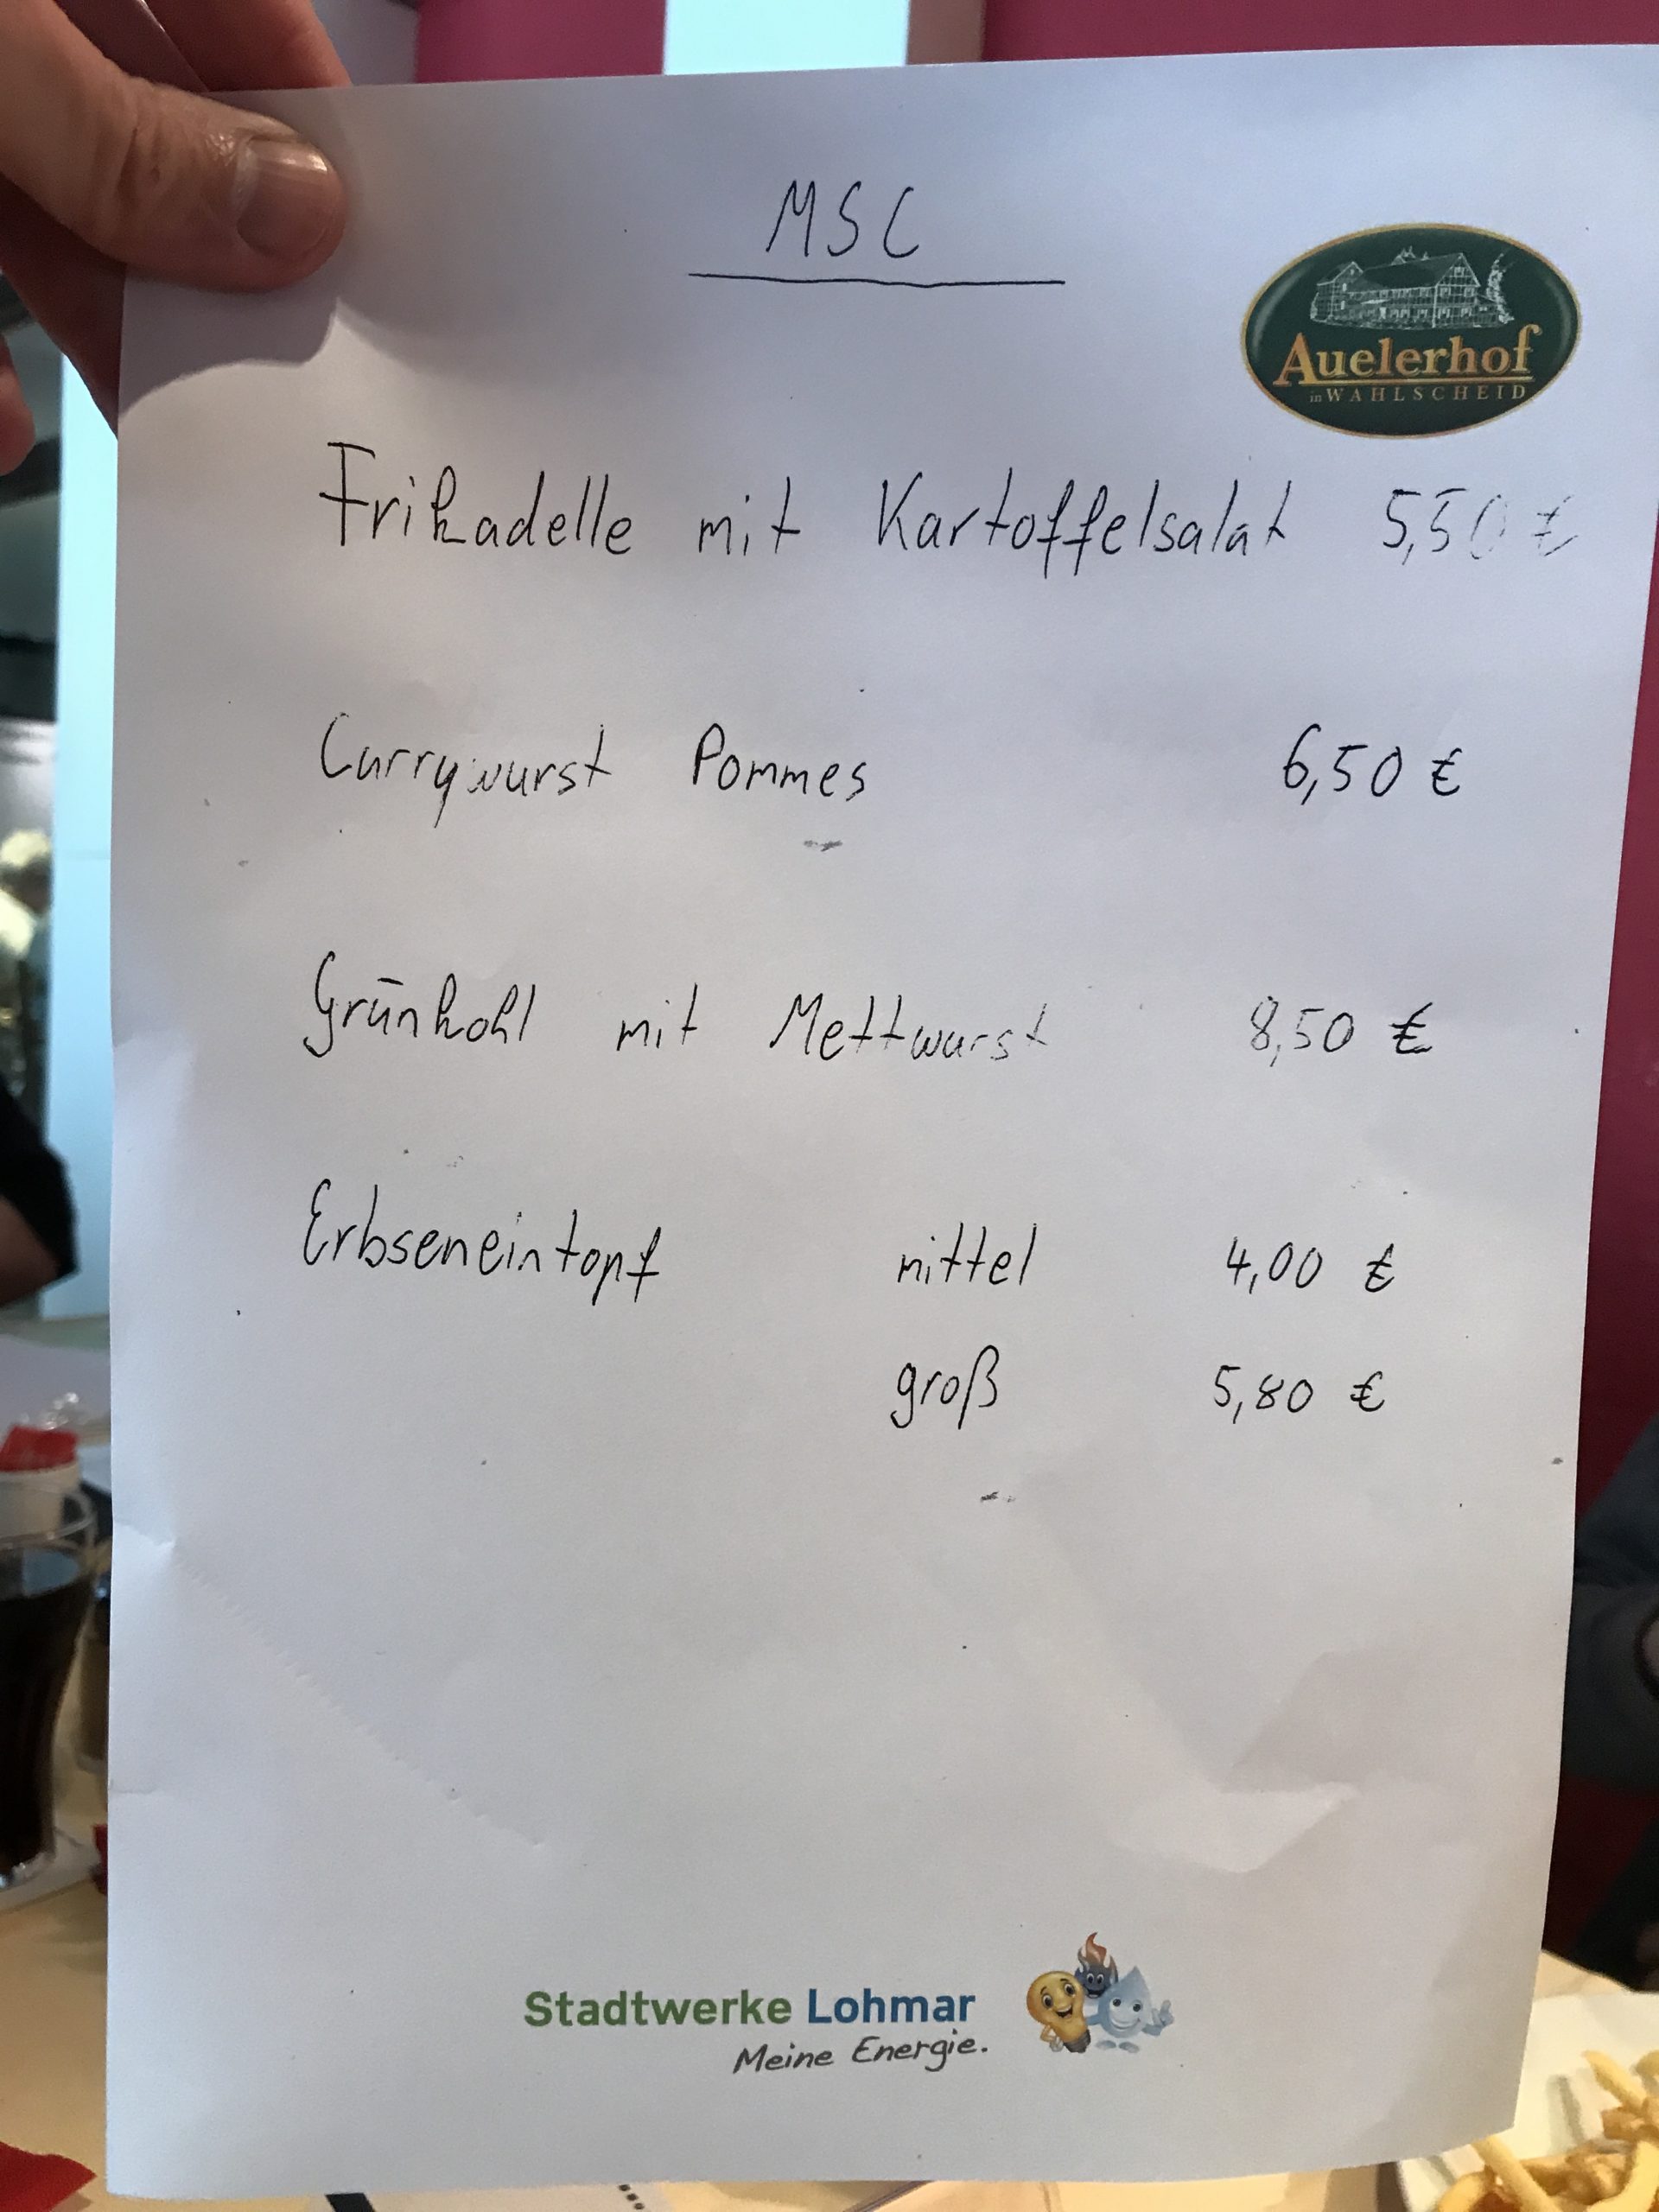 MSC
Auelerhof
in WAHLSCHEID
Frikadelle mit Kartoffelsalat 5,50 €
Currywurst Pommes 6,50 €
Grünkohl mit Mettwurst 8,50 €
Erbseneintopf mittel 4,00 €
groß 5,80 €
Stadtwerke Lohmar
Meine Energie.